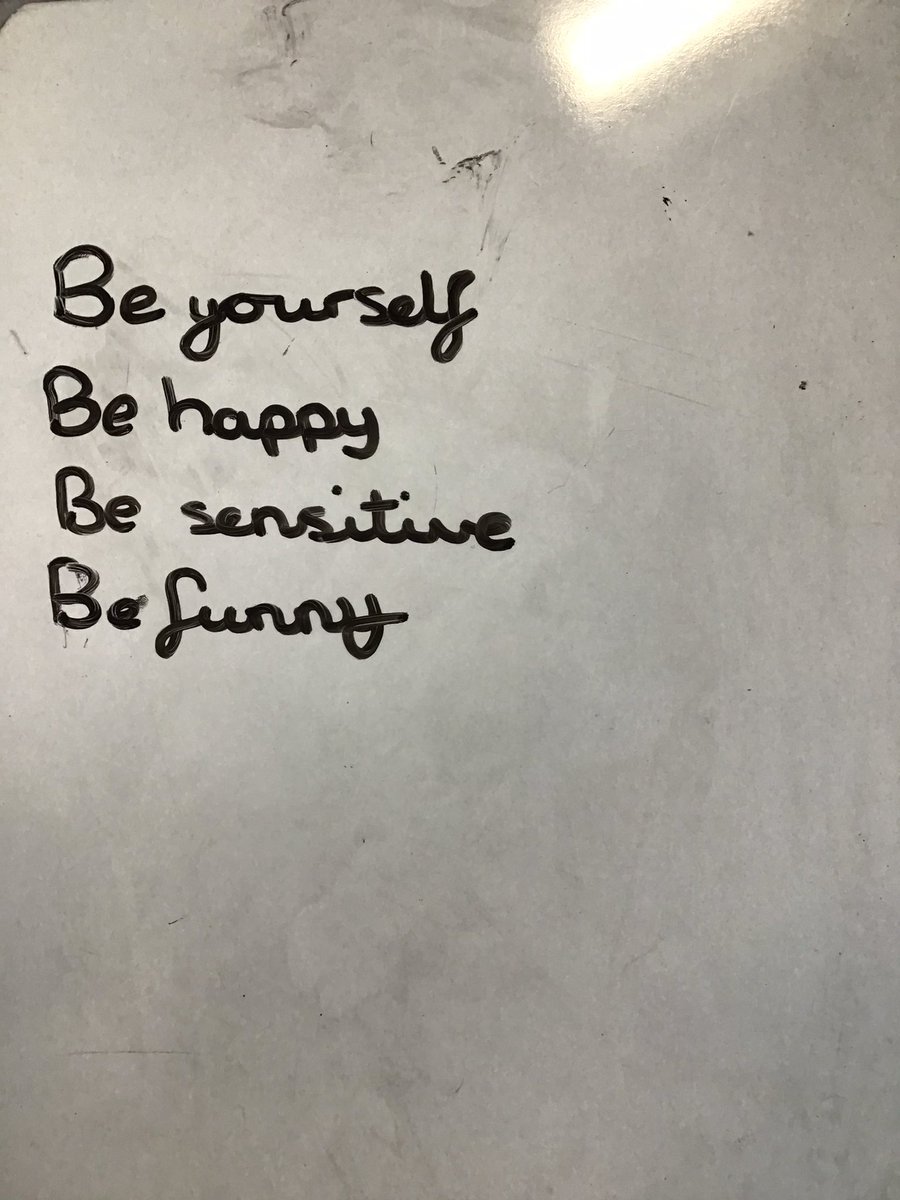 Be yourself
Be happy
Be sensitive
Be funny